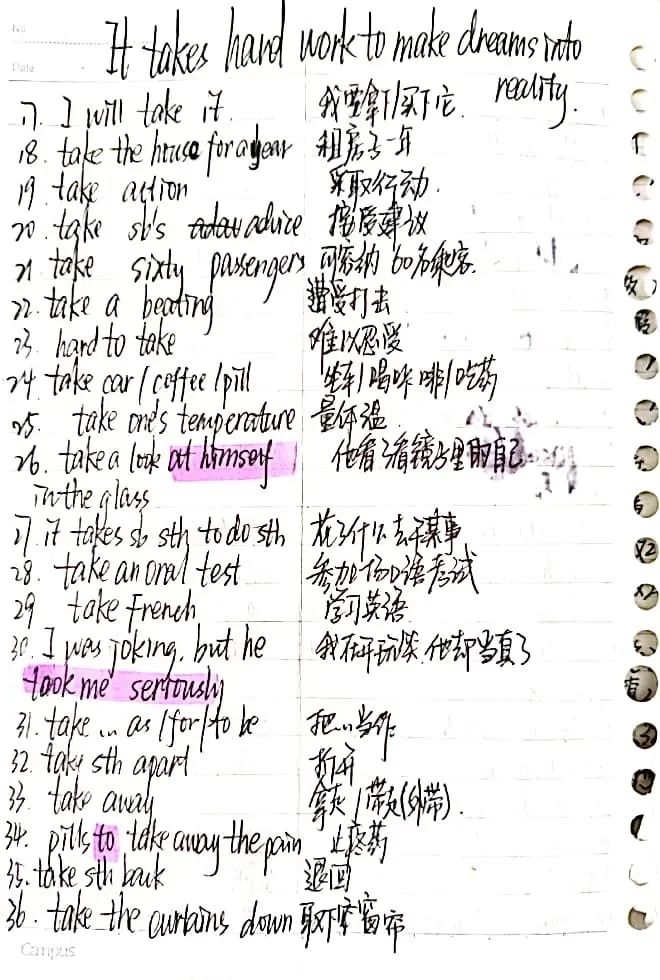 No
Date
It takes hard work to make dreams into
reality.
17. I will take it. 我要拿下/买下它.
18. take the house for a year 租房子一年
19 take action 采取行动.
20 take sb's advice 接受建议
21 take sixty passengers 可容纳 60名乘客.
22. take a beating 遭受打击
23. hard to take 难以忍受
24 take car / coffee / pill 坐车/喝咖啡/吃药
25. take one's temperature 量体温
26. take a look at himself 他看了看镜子里的自己
in the glass
27. it takes sb sth to do sth 花了什么去干某事
28. take an oral test 参加一场口语考试
29 take French 学习英语
30. I was joking, but he 我在开玩笑.他却当真了
took me seriously
31. take ... as / for / to be 把...当作
32. take sth apart 拆开
33. take away 拿走 / 带走(外带).
34. pills to take away the pain 止疼药
35. take sth back 退回
36. take the curtains down 取下窗帘
Campus